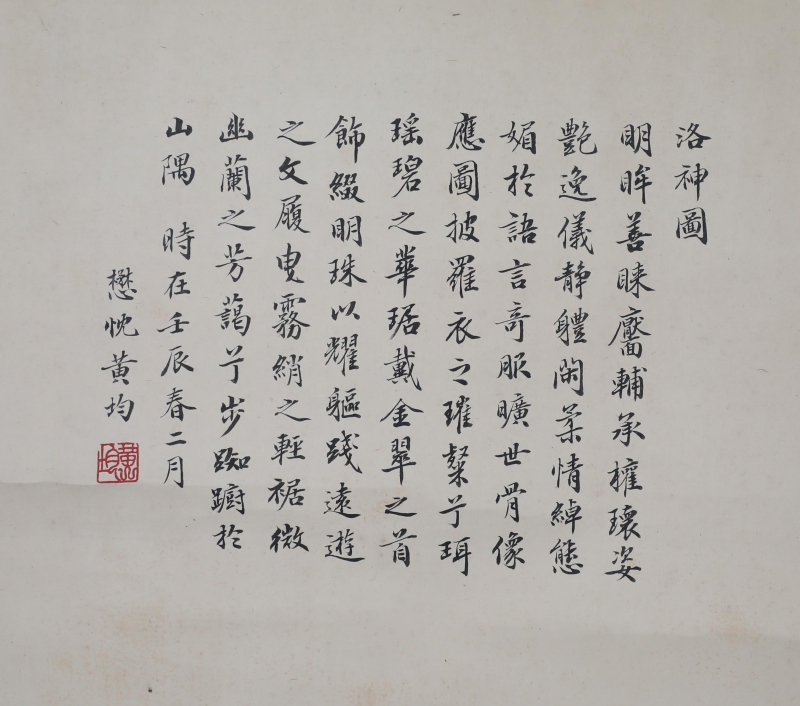 洛神圖
明眸善睞靨輔承權瓌姿
艷逸儀静體閑柔情綽態
媚於語言奇服曠世骨像
應圖披羅衣之璀粲兮珥
瑶碧之華琚戴金翠之首
飾綴明珠以耀軀踐遠遊
之文履曳霧綃之輕裾微
幽蘭之芳藹兮步踟躕於
山隅 時在壬辰春二月
懋忱黄均
黄均